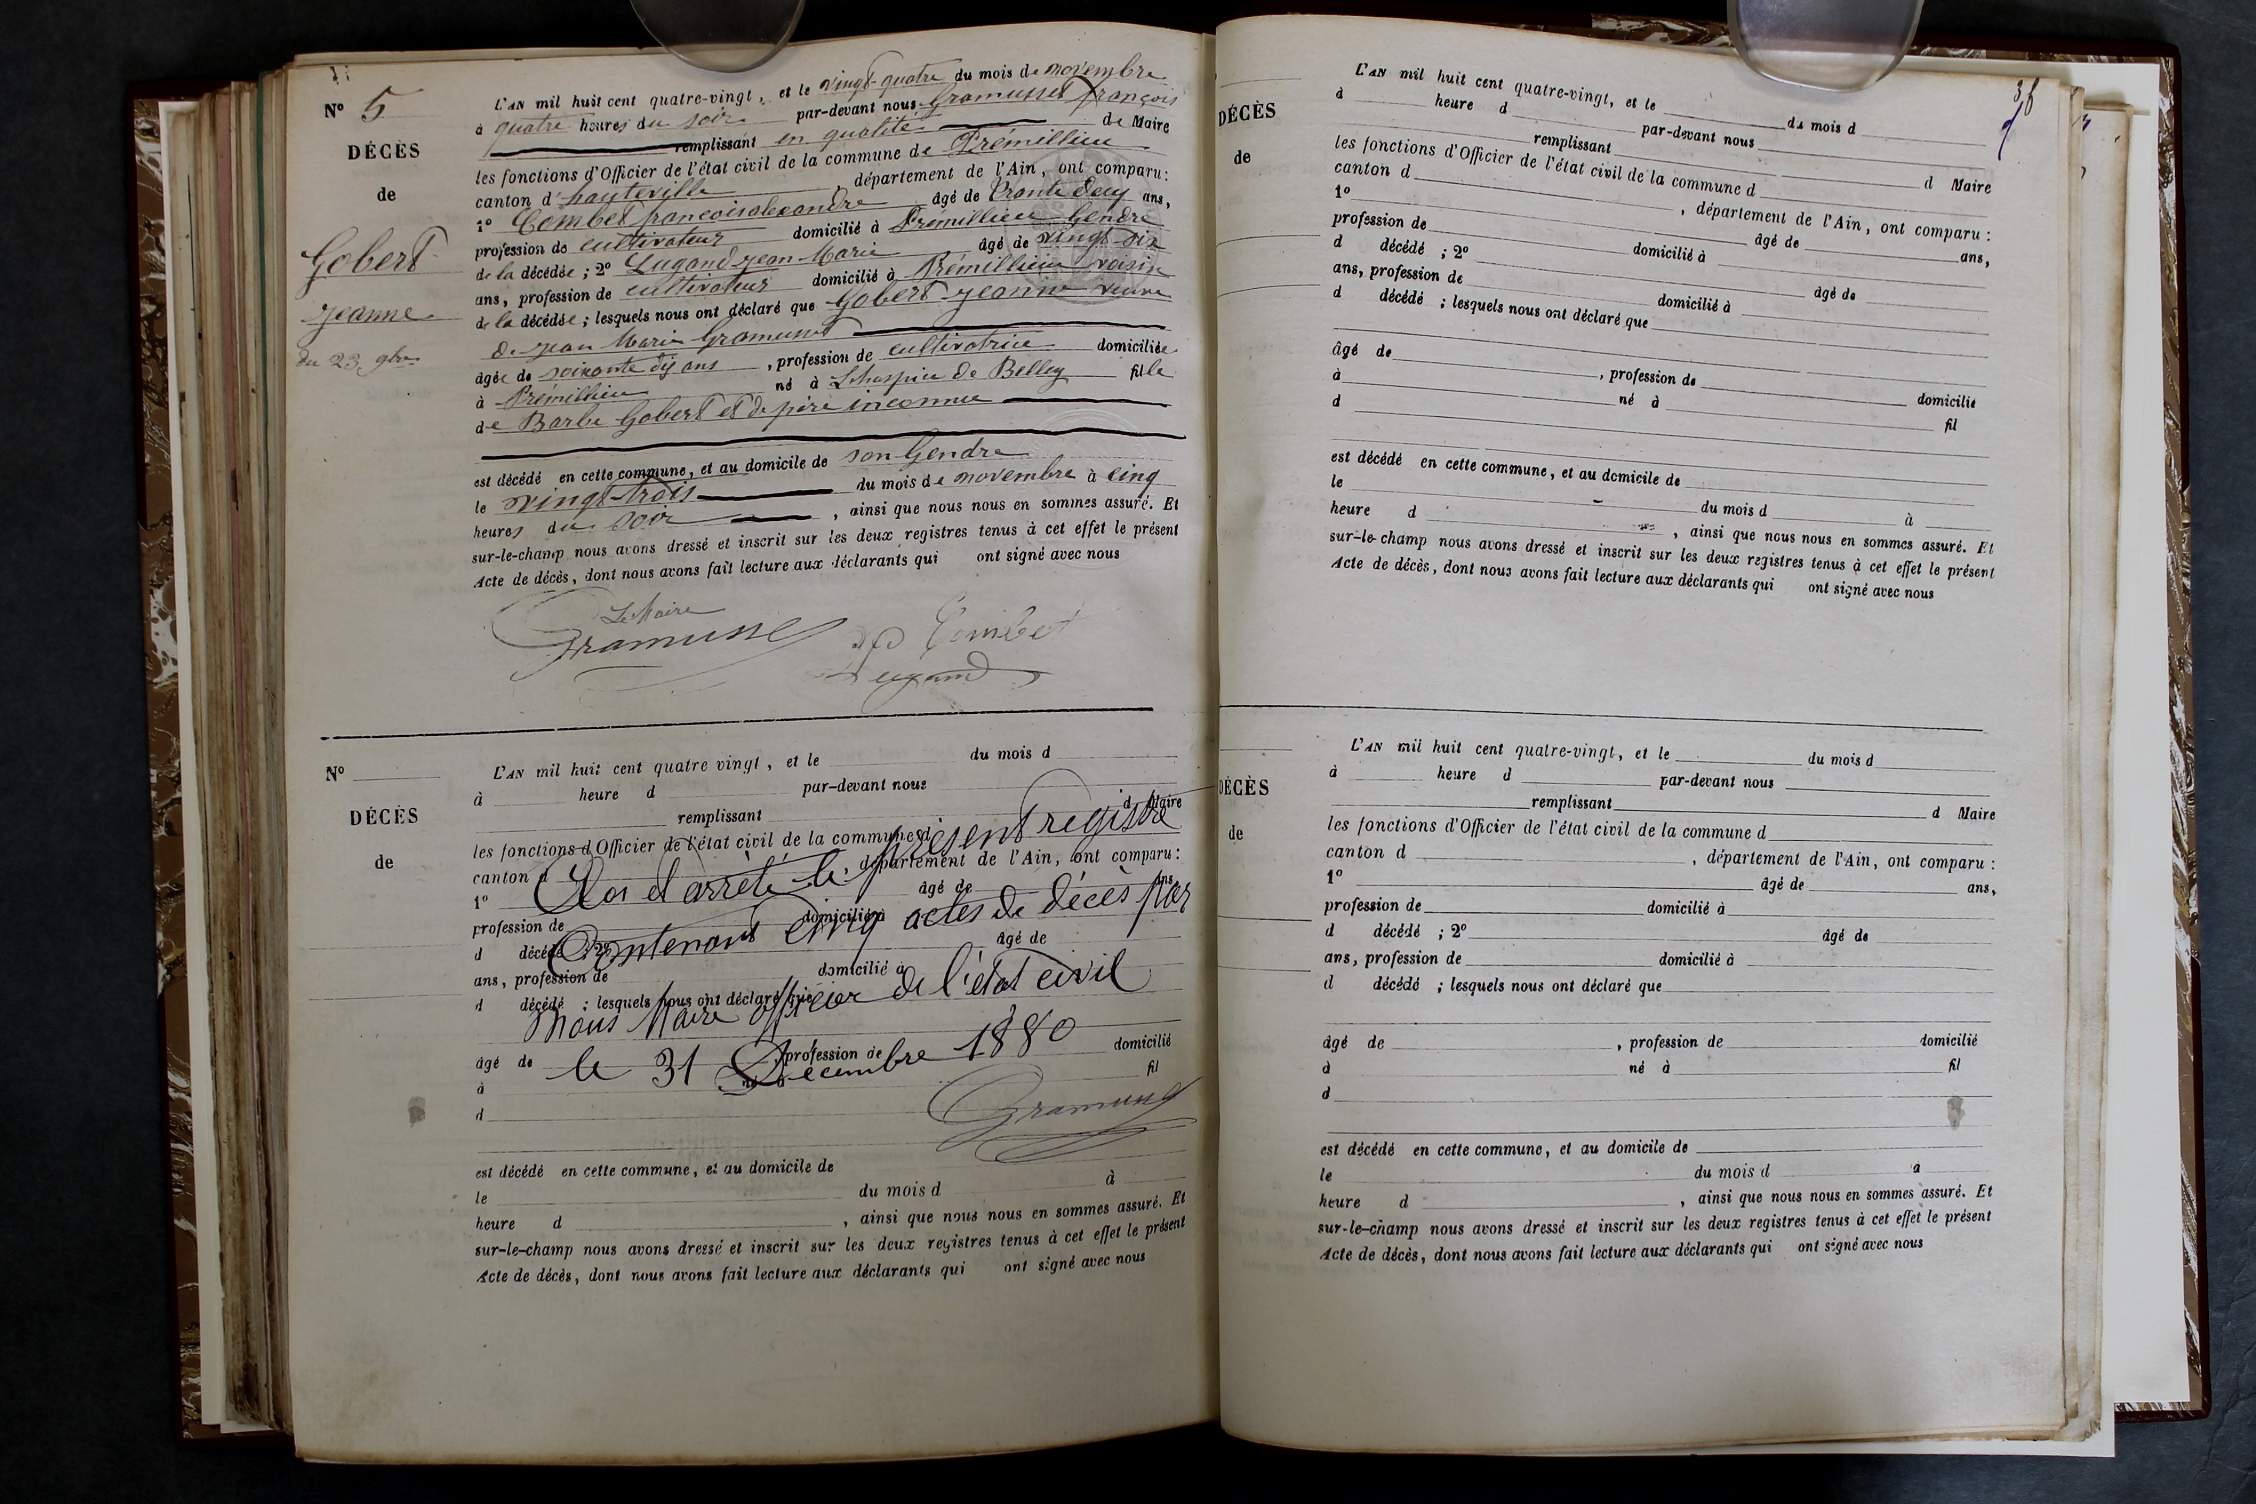 N° 5
DÉCÈS
de
Gobert
Jeanne
du 23 9bre
L'AN mil huit cent quatre-vingt, et le vingt-quatre du mois de novembre
à quatre heures du soir par-devant nous Gramusset françois
remplissant en qualité de Maire
les fonctions d'Officier de l'état civil de la commune de Prémillieu
canton d'hauteville, département de l'Ain, ont comparu:
1° Combet francois alexandre âgé de trente deux ans,
profession de cultivateur domicilié à Prémillieu Gendre
de la décédée; 2° Lugand jean Marie âgé de vingt six
ans, profession de cultivateur domicilié à Prémillieu voisin
de la décédée; lesquels nous ont déclaré que Gobert Jeanne veuve
de jean Marie Gramusset
âgée de soixante dix ans, profession de cultivatrice domiciliée
à Prémillieu né à L'hospice de Belley fille
de Barbe Gobert et de père inconnu
est décédé en cette commune, et au domicile de son Gendre
le vingt trois du mois de novembre à cinq
heures du soir, ainsi que nous nous en sommes assuré. Et
sur-le-champ nous avons dressé et inscrit sur les deux registres tenus à cet effet le présent
Acte de décès, dont nous avons fait lecture aux déclarants qui ont signé avec nous
Le Maire
Gramusset
Combet
Lugand
N°
DÉCÈS
de
L'AN mil huit cent quatre vingt, et le du mois d
à heure d par-devant nous
remplissant d Maire
les fonctions d'Officier de l'état civil de la commune d
canton d, département de l'Ain, ont comparu:
1° âgé de ans,
profession de domicilié à
d décédé; 2° âgé de
ans, profession de domicilié à
d décédé; lesquels nous ont déclaré que
âgé de, profession de domicilié
à né à fil
d
Clos et arrêté le présent registre
Contenant cinq actes de décès par
Nous Maire officier de l'état civil
le 31 Décembre 1880
Gramusset
est décédé en cette commune, et au domicile de
le du mois d à
heure d, ainsi que nous nous en sommes assuré. Et
sur-le-champ nous avons dressé et inscrit sur les deux registres tenus à cet effet le présent
Acte de décès, dont nous avons fait lecture aux déclarants qui ont signé avec nous
DÉCÈS
de
L'AN mil huit cent quatre-vingt, et le du mois d
à heure d par-devant nous
remplissant d Maire
les fonctions d'Officier de l'état civil de la commune d
canton d, département de l'Ain, ont comparu:
1° âgé de ans,
profession de domicilié à
d décédé; 2° âgé de
ans, profession de domicilié à
d décédé; lesquels nous ont déclaré que
âgé de, profession de domicilié
à né à fil
d
est décédé en cette commune, et au domicile de
le du mois d à
heure d, ainsi que nous nous en sommes assuré. Et
sur-le-champ nous avons dressé et inscrit sur les deux registres tenus à cet effet le présent
Acte de décès, dont nous avons fait lecture aux déclarants qui ont signé avec nous
DÉCÈS
de
L'AN mil huit cent quatre-vingt, et le du mois d
à heure d par-devant nous
remplissant d Maire
les fonctions d'Officier de l'état civil de la commune d
canton d, département de l'Ain, ont comparu:
1° âgé de ans,
profession de domicilié à
d décédé; 2° âgé de
ans, profession de domicilié à
d décédé; lesquels nous ont déclaré que
âgé de, profession de domicilié
à né à fil
d
est décédé en cette commune, et au domicile de
le du mois d à
heure d, ainsi que nous nous en sommes assuré. Et
sur-le-champ nous avons dressé et inscrit sur les deux registres tenus à cet effet le présent
Acte de décès, dont nous avons fait lecture aux déclarants qui ont signé avec nous